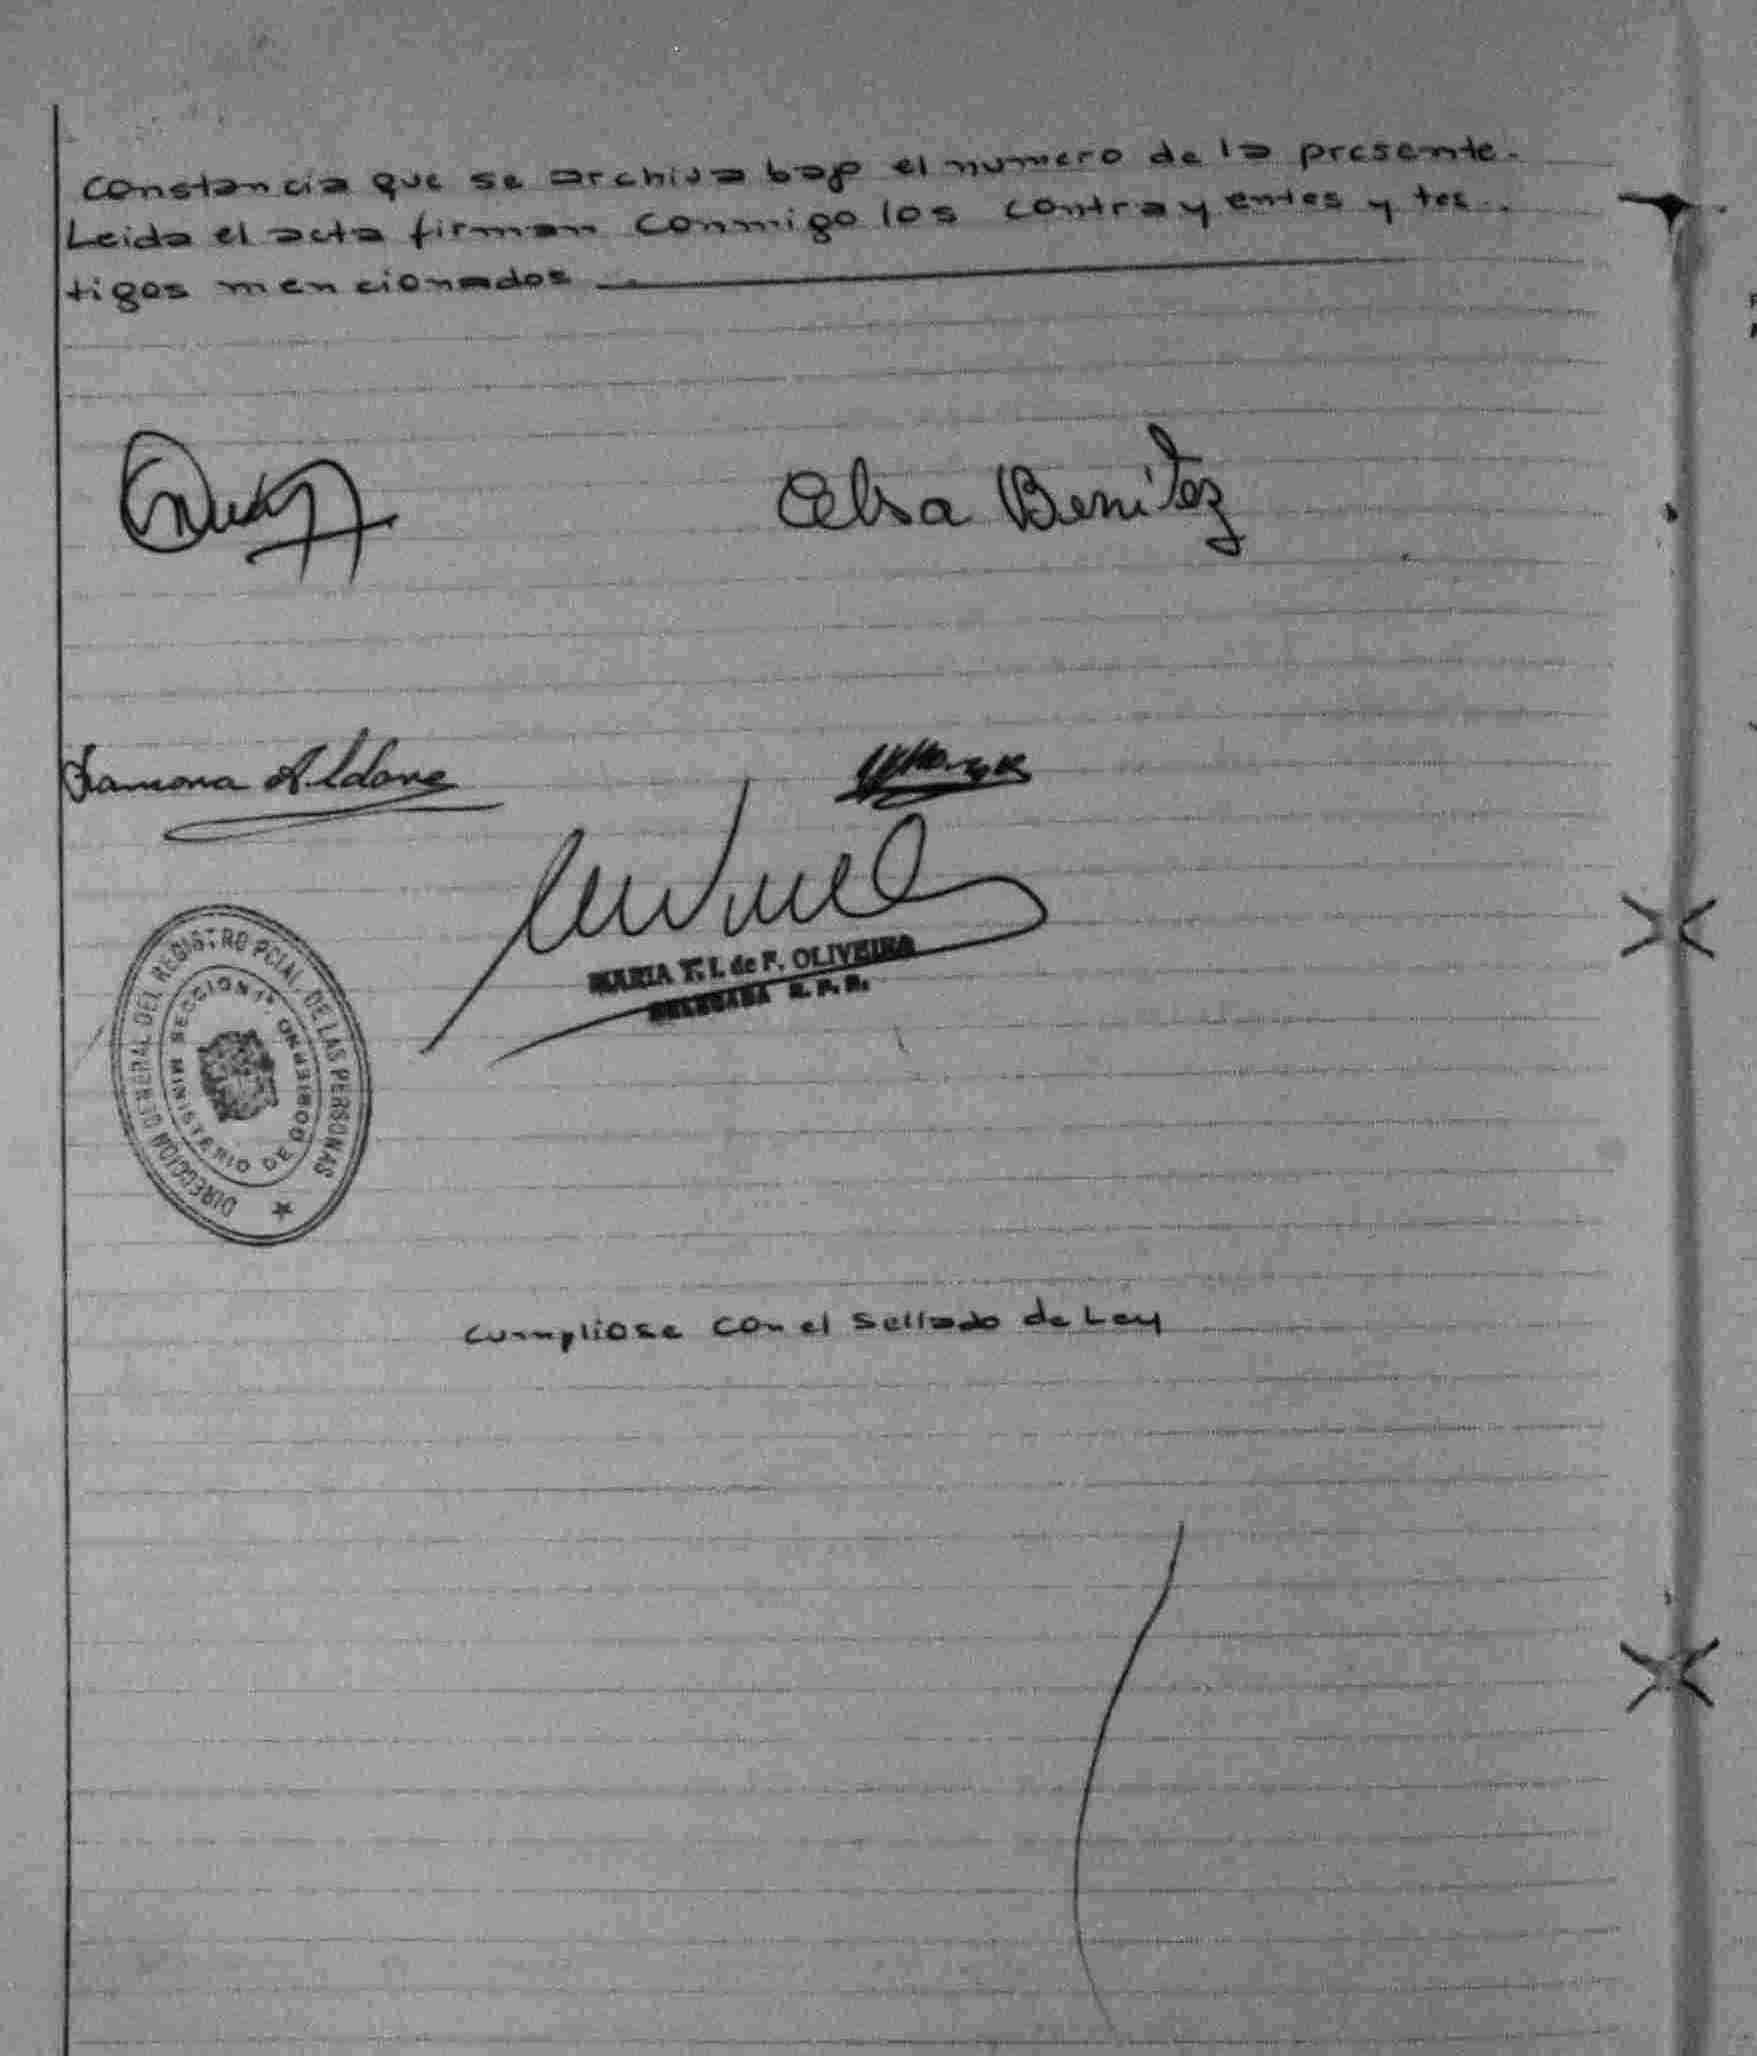 constancia que se archiva bajo el numero de la presente.
Leida el acta firman conmigo los contrayentes y tes-
tigos mencionados
Celsa Benitez
Ramona Aldana
MARIA T. I. de F. OLIVEIRA
DELEGADA R. P. P.
DIRECCION GENERAL DEL REGISTRO PCIAL. DE LAS PERSONAS
SECCION 1ª. MINISTERIO DE GOBIERNO
Cumpliose con el Sellado de Ley